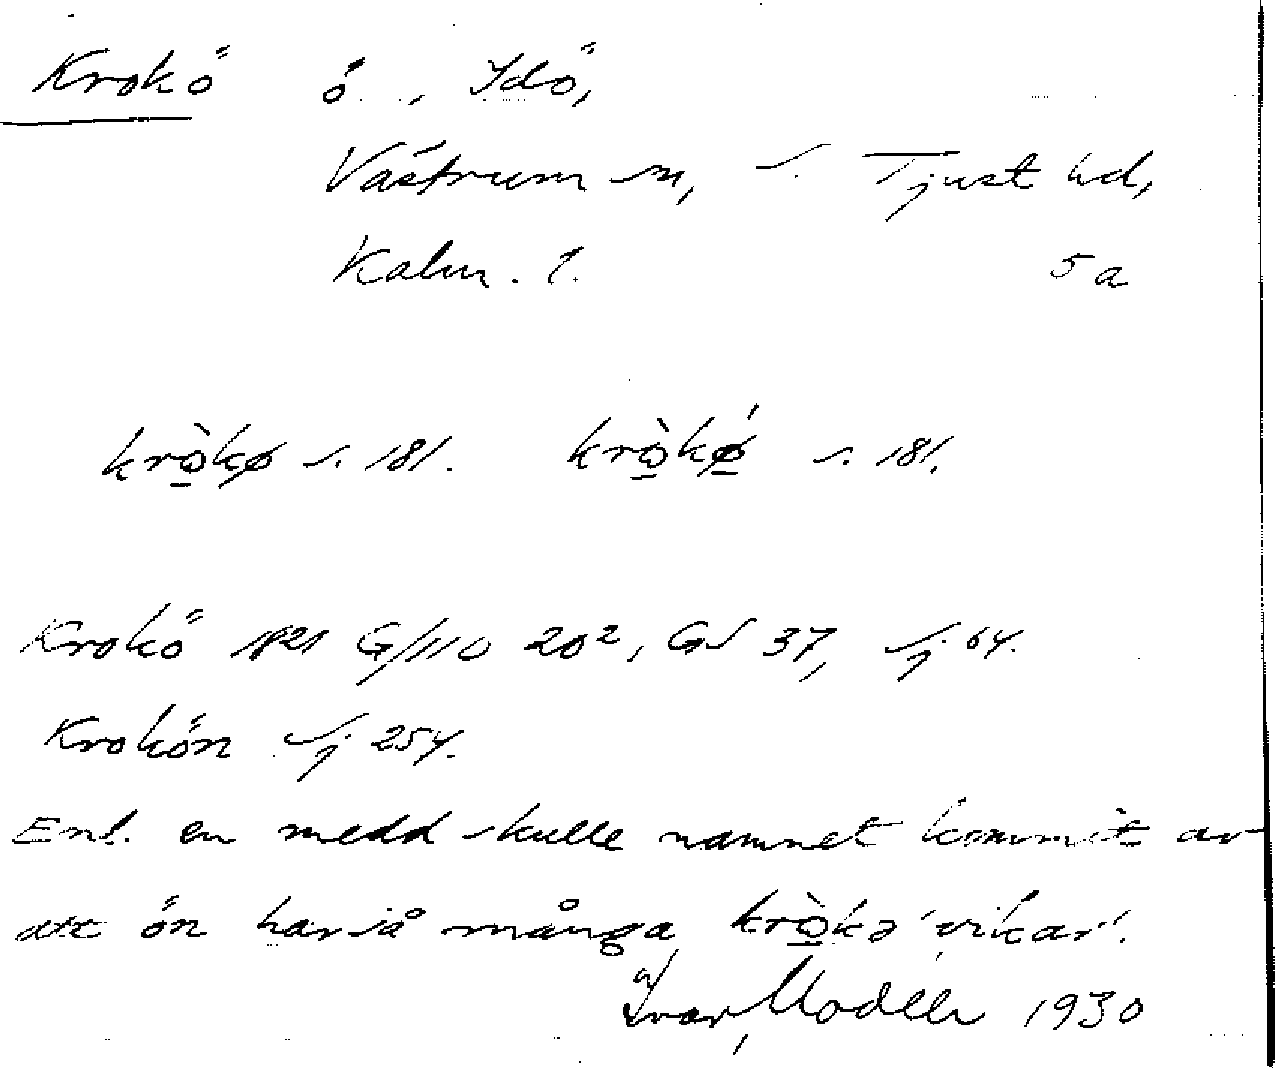 Krokö ö., Idö,
Västrum sn, S. Tjust hd,
Kalm. l. 5a
krò̱kø s. 181. krò̱kǿ̱ s. 181.
Krokö 1821 G/110 20², GS 37, Sj 64.
Krokön Sj 254.
Enl. en medd skulle namnet kommit av
att ön har så många krò̱kə 'vikar'.
av Ivar Modéer 1930